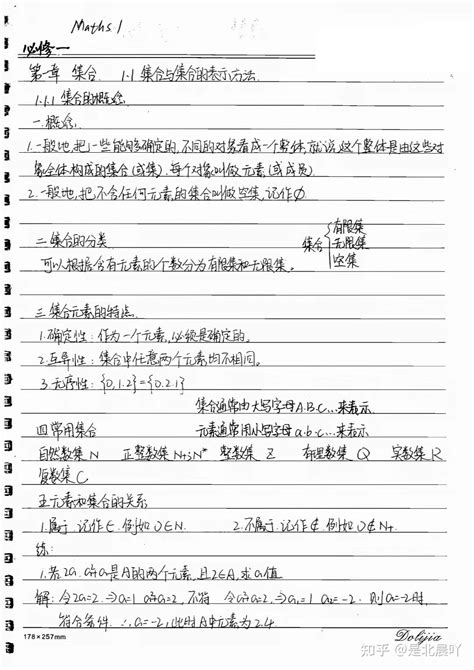 Maths 1
必修一
第一章 集合 1.1 集合与集合的表示方法
1.1.1 集合的概念
一.概念
1.一般地,把一些能够确定的,不同的对象看成一个整体,就说,这个整体是由这些对
象全体构成的集合(或集).每个对象叫做元素(或成员)
2.一般地,把不含任何元素的集合叫做空集,记作∅
二.集合的分类
集合{有限集
无限集
空集
可以根据含有元素的个数分为有限集和无限集。
三.集合元素的特点
1.确定性:作为一个元素,必须是确定的。
2.互异性:集合中任意两个元素均不相同。
3.无序性:{0,1,2}={0,2,1}
集合通常由大写字母A.B.C...来表示
四.常用集合 元素通常用小写字母a.b.c...来表示
自然数集N 正整数集N+或N* 整数集 Z 有理数集 Q 实数集R
复数集C
五.元素和集合的关系
1.属于 记作∈. 例如 0∈N. 2.不属于.记作∉ 例如 0∉N+.
练:
1.若2a, a²+a是A的两个元素,且2∈A,求a值
解:令2a=2.⇒a=1 a²+a=2. 不符 令a²+a=2.⇒a₁=1 a₂=-2. 则a=-2时,
符合条件. ∴a=-2,此时A中元素为2.-4.
178×257mm
Dolijia
知乎 @是北晨吖